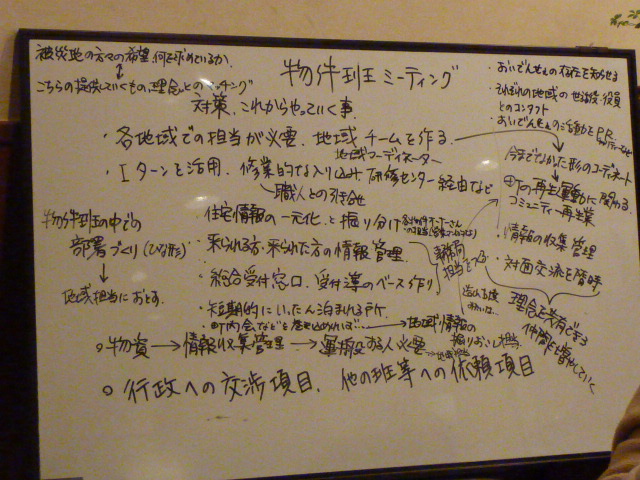 被災地の方々の希望、何を求めているか、
こちらの提供していくもの、理念とのマッチング
物件班ミーティング
対策、これからやっていく事、
・各地域での担当が必要、地域チームを作る、
地域コーディネーター
・Iターンを活用、修業的な入り込み 研修センター経由など
職人との待合せ
・住宅情報の一元化と振り分け
・来られる方・来られた方の情報管理
・総合受付窓口、受付簿のベース作り
・短期的にいったん泊まれる所、
・町内会などを
→地域情報の
掘りおこし担当、
事務局
担当をつくる
物件班の中での
部署づくり(ひな形)
地域担当におとす
○物資→情報収集管理→運搬する人必要
→地域担当
○行政への交渉項目、他の班等への依頼項目
・おいでんせぇの存在を知らせる
・それぞれの地域の世話役・役員
とのコンタクト
・おいでんせぇの活動をPR
今までなかった形のコーディネート
の再生運動に関わる
コミュニティー再生業
・情報の収集管理
・対面交流を随時
理念を共有できる
仲間を増やしていく